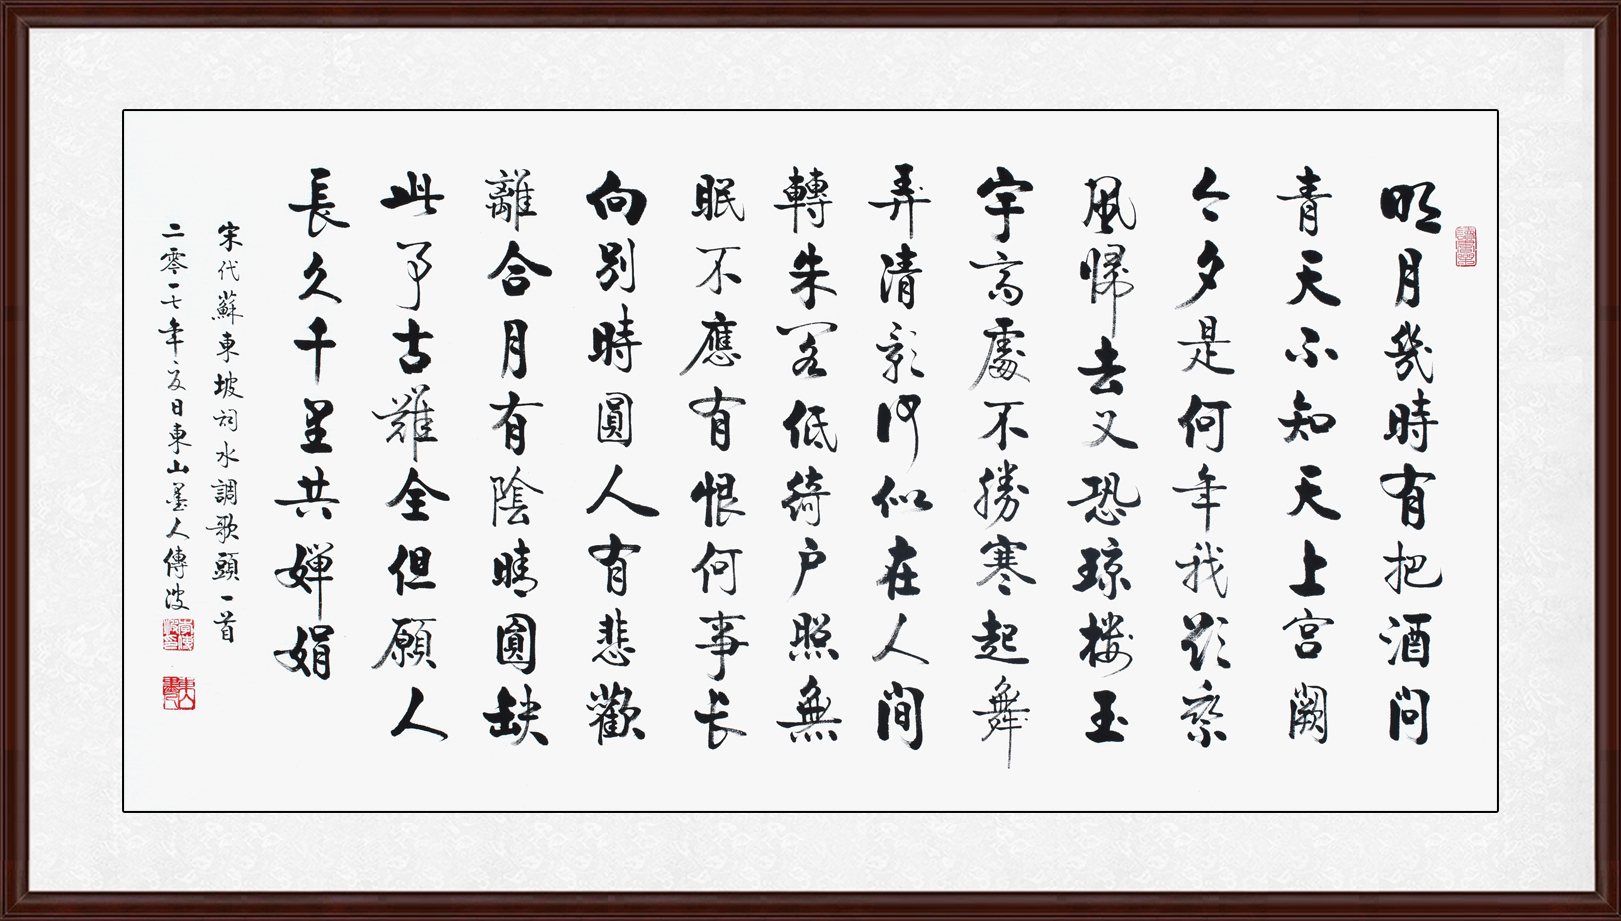 明月幾時有把酒問
青天不知天上宫闕
今夕是何年我欲乘
風歸去又恐琼楼玉
宇高處不勝寒起舞
弄清影何似在人間
轉朱閣低綺户照無
眠不應有恨何事长
向别時圓人有悲歡
離合月有陰晴圓缺
此事古難全但願人
長久千里共嬋娟
宋代蘇東坡词水調歌頭一首
二零一七年夏日東山墨人傳波